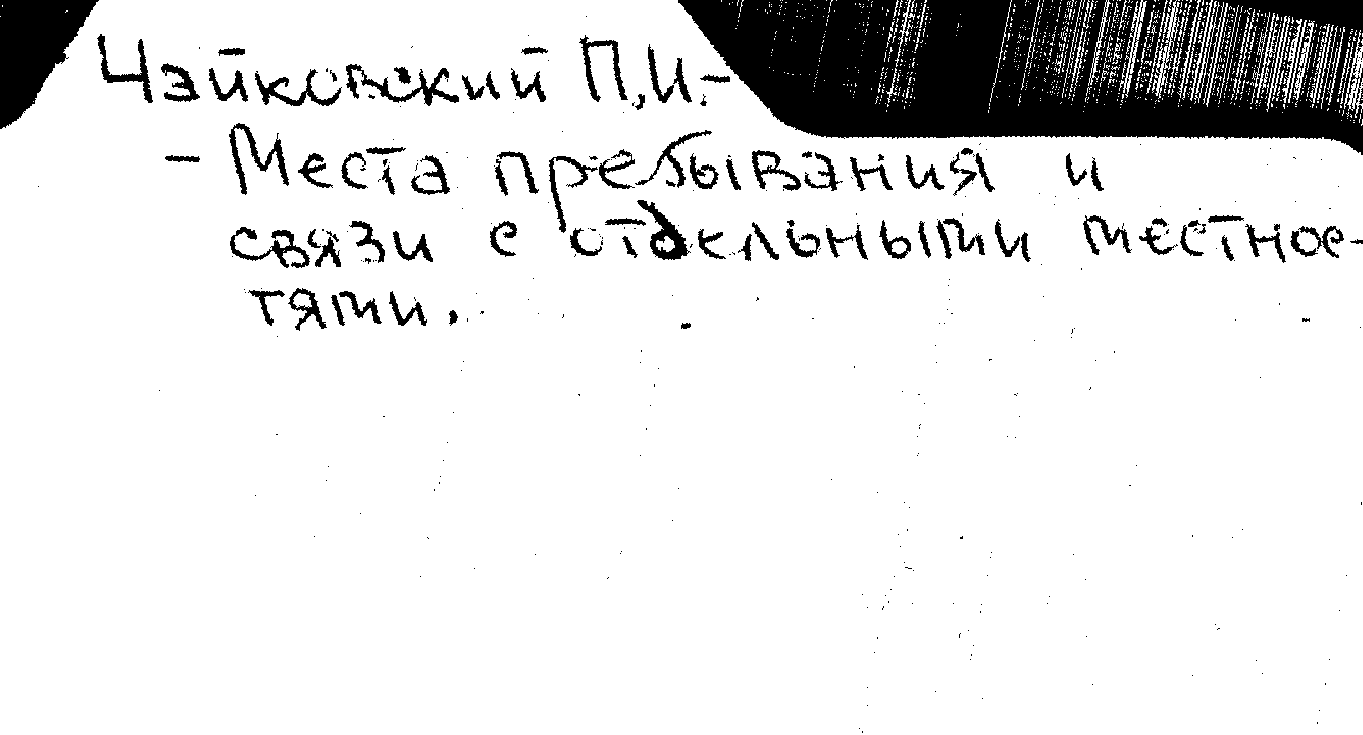 Чайковский П.И.-
- Места пребывания и
связи с отдельными местнос-
тями.